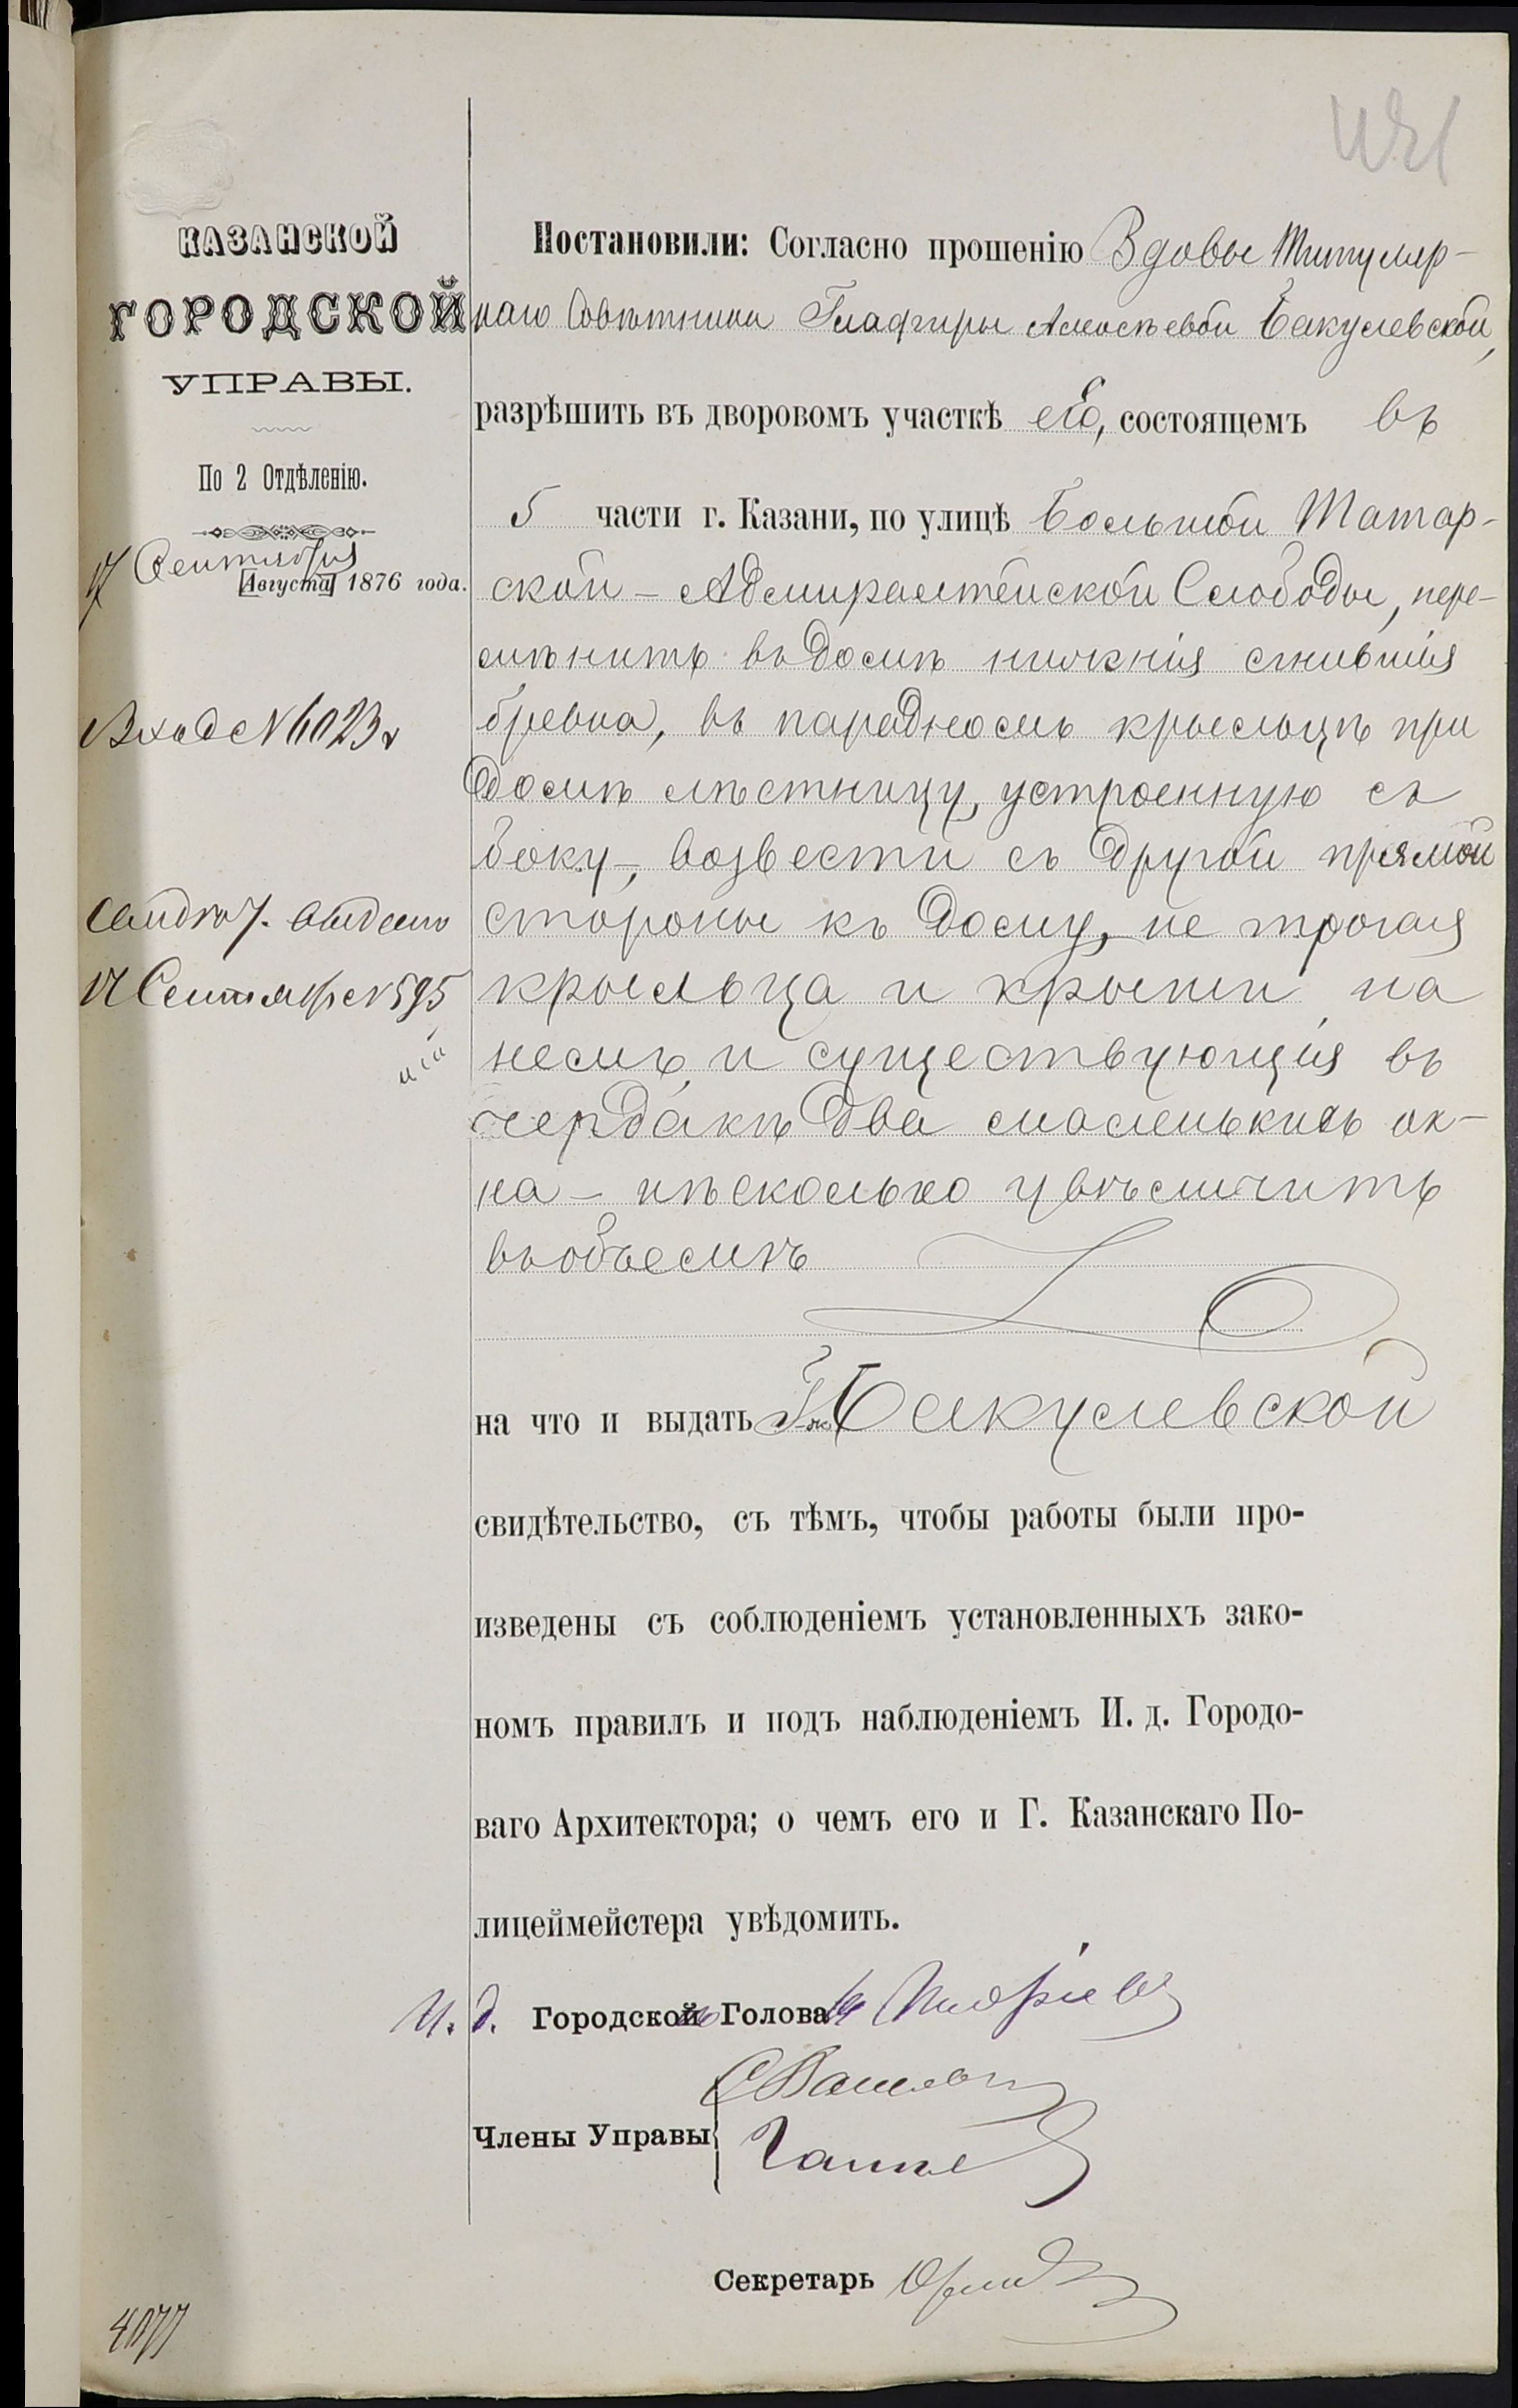 КАЗАНСКОЙ
ГОРОДСКОЙ
УПРАВЫ.
По 2 Отдѣленію.
17 Сентября
[Августа] 1876 года.
Вход № 6023
17 Сентября № 595
4077
Постановили: Согласно прошенію Вдовы Титуляр-
наго Совѣтника Глафиры Алексѣевой Бакулевской,
разрѣшить въ дворовомъ участкѣ ея, состоящемъ въ
5 части г. Казани, по улицѣ Большой Татар-
ской - Адмиралтейской Слободы, пере-
мѣнить въ домѣ нижнія сгнившія
бревна, въ парадномъ крыльцѣ при
домѣ лѣстницу, устроенную съ
боку, возвести съ другой прямой
стороны къ дому, не трогая
крыльца и крыши на
немъ и существующія въ
чердакѣ два маленькихъ ок-
на - нѣсколько увѣличить
въ объемѣ
на что и выдать Г-жѣ Бакулевской
свидѣтельство, съ тѣмъ, чтобы работы были про-
изведены съ соблюденіемъ установленныхъ зако-
номъ правилъ и подъ наблюденіемъ И. д. Городо-
ваго Архитектора; о чемъ его и Г. Казанскаго По-
лицеймейстера увѣдомить.
И. д. Городского Головы
Члены Управы
Секретарь